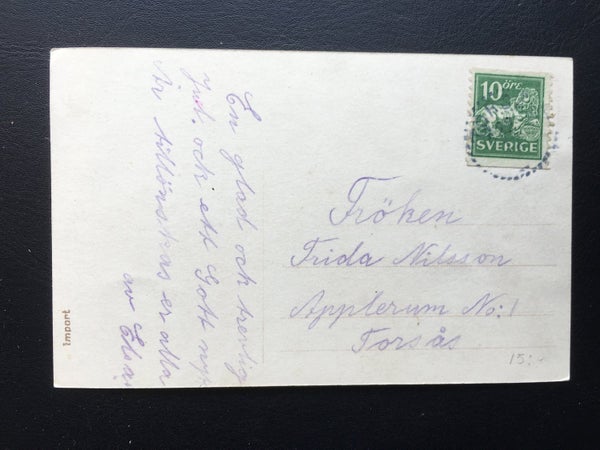 En glad och trevlig
Jul, och ett Gott nytt
År tillönskas er alla
av Elsa.
10 ÖRE
SVERIGE
Fröken
Frida Nilsson
Applerum No: 1
Torsås
15:-
Import